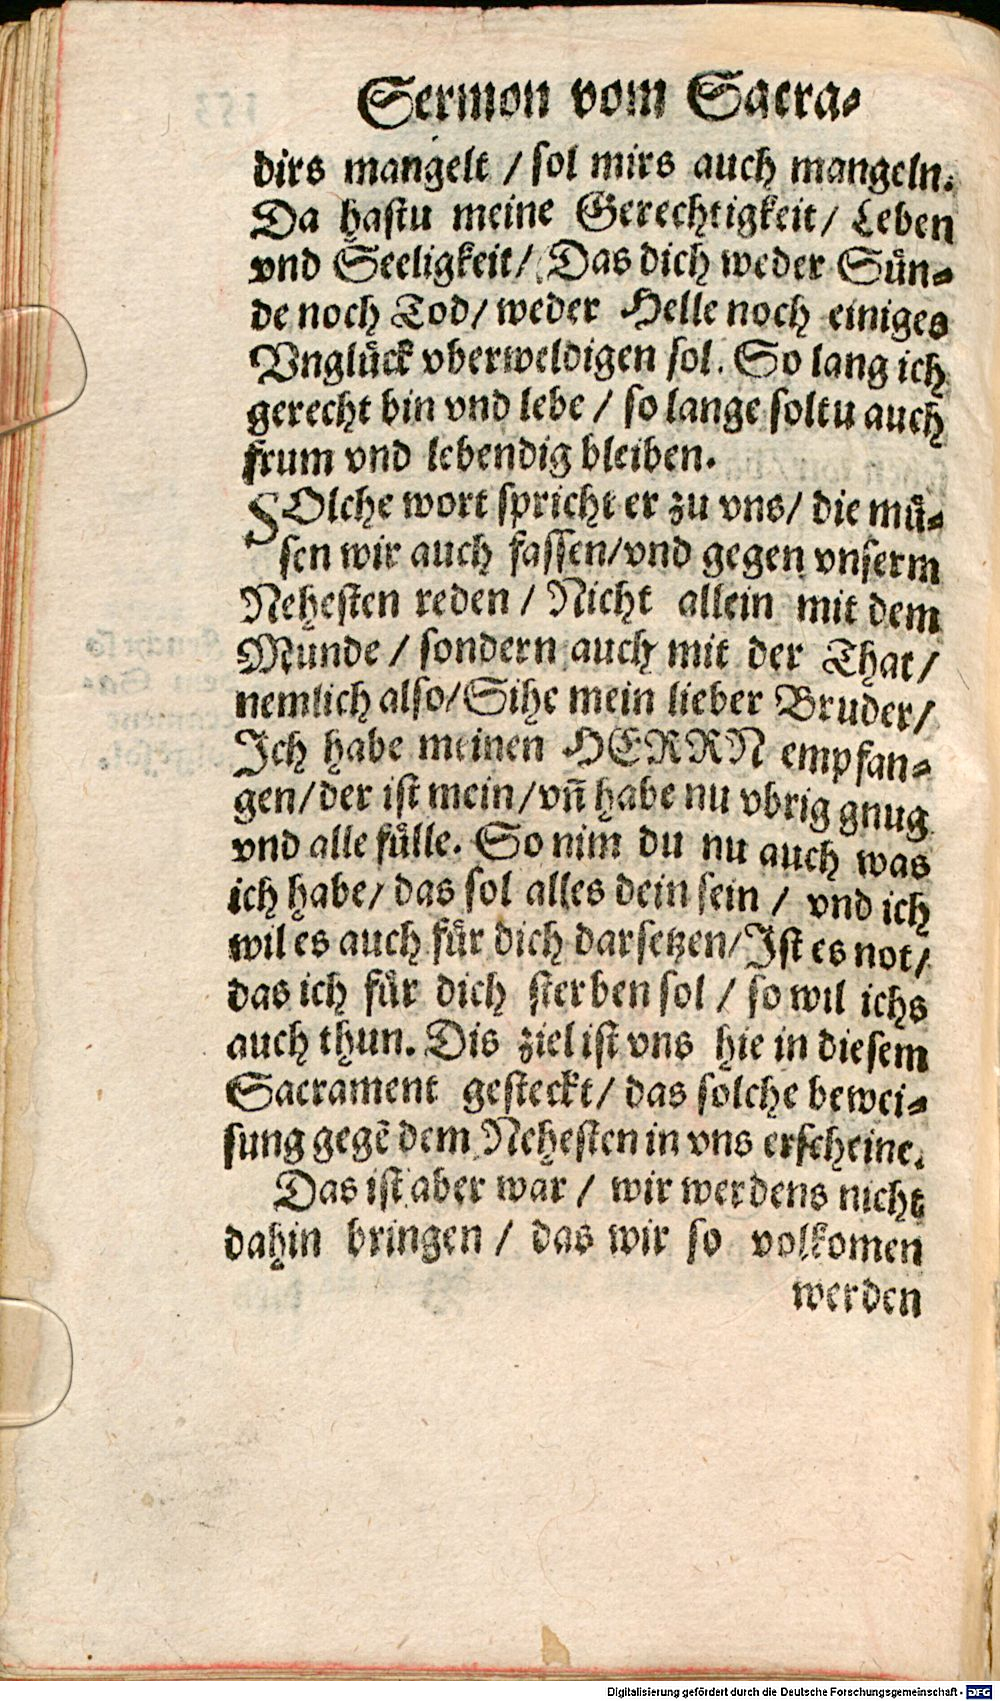 Sermon vom Sacra-
dirs mangelt / sol mirs auch mangeln.
Da hastu meine Gerechtigkeit/ Leben
vnd Seeligkeit/ Das dich weder Suͤn-
de noch Tod/ weder Helle noch einiges
Vngluͤck vberweldigen sol. So lang ich
gerecht bin vnd lebe / so lange soltu auch
frum vnd lebendig bleiben.
SOlche wort spricht er zu vns/ die muͤ-
sen wir auch fassen/vnd gegen vnserm
Nehesten reden / Nicht allein mit dem
Munde / sondern auch mit der That/
nemlich also/Sihe mein lieber Bruder/
Ich habe meinen HERRN empfan-
gen/der ist mein/vn̄ habe nu vbrig gnug
vnd alle fuͤlle. So nim du nu auch was
ich habe/ das sol alles dein sein / vnd ich
wil es auch fuͤr dich darsetzen/Ist es not/
das ich fuͤr dich sterben sol / so wil ichs
auch thun. Dis ziel ist vns hie in diesem
Sacrament gesteckt/ das solche bewei-
sung gegē dem Nehesten in vns erscheine.
Das ist aber war / wir werdens nicht
dahin bringen / das wir so volkomen
werden
Digitalisierung gefördert durch die Deutsche Forschungsgemeinschaft - DFG